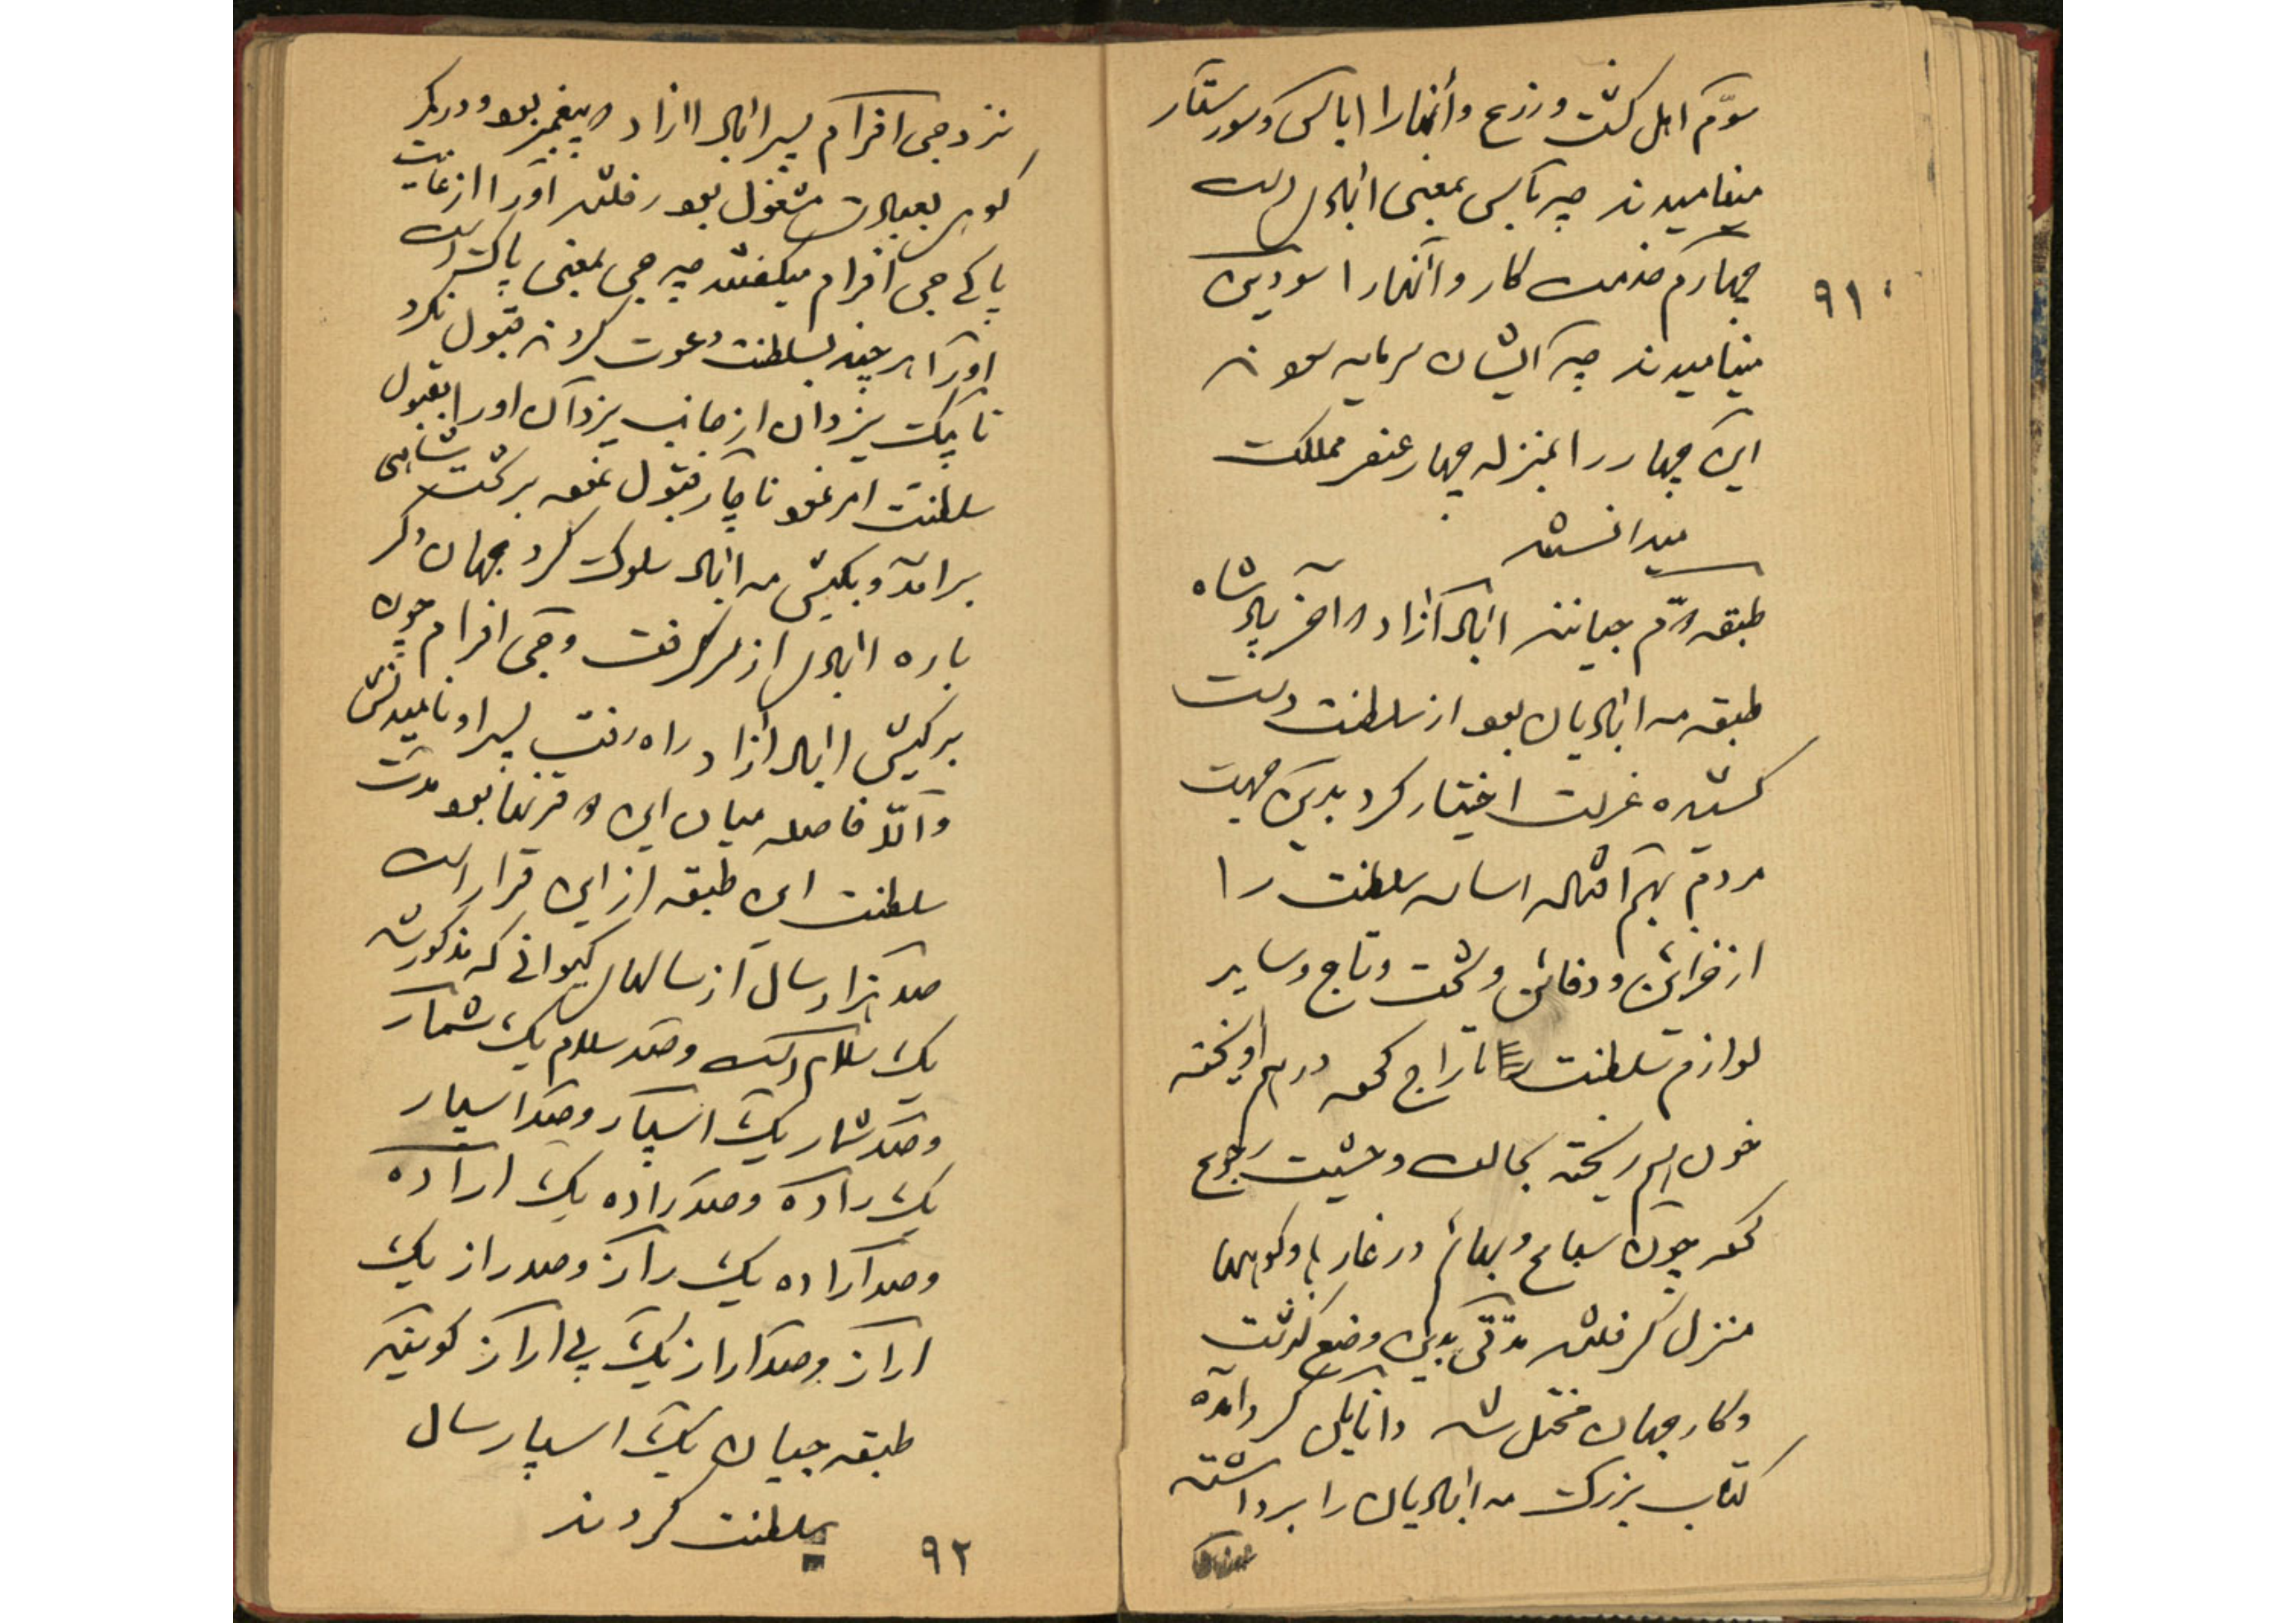 سوّم اهل کشت و زرع و آنها را اباسی و سورستار
مینامیدند چه باسی بمعنی آبادی است
چهارم خدمت کار و آنها را سودین
مینامیدند چه ایشان سرمایه سود
این چهار را بمنزله چهار عنصر مملکت
میدانستند
طبقه دوّم جیانند آباد آزاد که آخر پادشاه
طبقه مه آبادیان بود از سلطنت دست
کشیده عزلت اختیار کرد بدین جهت
مردم بهم افتاده اساس سلطنت را
از خزائن و دفائن و تخت و تاج و سایر
لوازم سلطنت تاراج کرده درهم آویخته
خون هم ریخته بحالت وحشیت رجوع
کرده چون سباع و بهائم در غارها و کوهها
منزل گرفتند مدّتی بدین وضع گذشت
و کار جهان مختل شد دانایان گرد آمده
کتاب بزرگ مه آبادیان را برداشته
۹۱
نزد جی افرام پسر آباد آزاد که پیغمبر بود و در کمر
کوهی بعبادت مشغول بود رفتند او را از غایت
پاکی جی افرام میگفتند چه جی بمعنی پاک است
او را هر چند بسلطنت دعوت کردند قبول نکرد
تا پیک یزدان از جانب یزدان او را بقبول
سلطنت امر نمود ناچار قبول نموده بر تخت شاهی
برآمد و بکیش مه آباد سلوک کرد جهان دگر
باره آبادی از سر گرفت و جی افرام چون
بر کیش آباد آزاد راه رفت پسر او نامیدنش
و الّا فاصله میان این دو قرنها بود مدت
سلطنت این طبقه از این قرار است
صد هزار سال از سالهای کیوانی که مذکور شد
یک سلام است و صد سلام یک شمار
و صد شمار یک اسپار و صد اسپار
یک راده و صد راده یک اراده
و صد اراده یک راز و صد راز یک
اراز و صد اراز یک بی اراز گویند
طبقه جیان یک اسپار سال
سلطنت کردند
۹۲